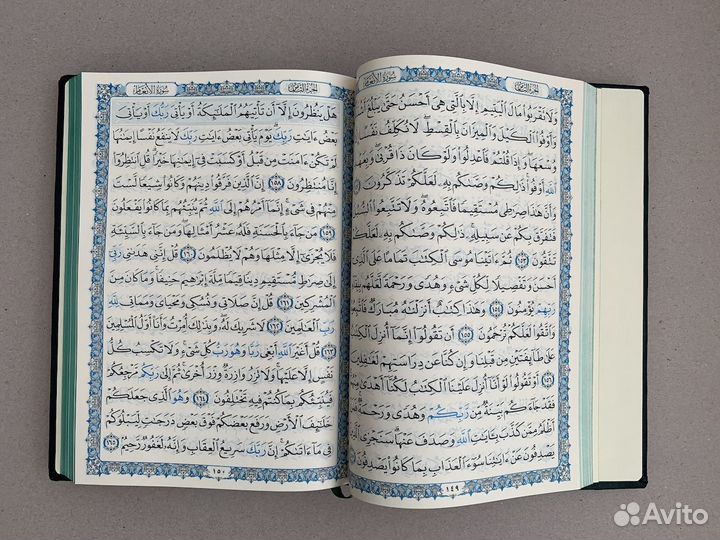 الجزء الثامن سُورَةُ الأَنْعَامِ
وَلَا تَقْرَبُوا۟ مَالَ ٱلْيَتِيمِ إِلَّا بِٱلَّتِى هِىَ أَحْسَنُ حَتَّىٰ يَبْلُغَ
وَأَوْفُوا۟ ٱلْكَيْلَ وَٱلْمِيزَانَ بِٱلْقِسْطِ لَا نُكَلِّفُ نَفْسًا
وُسْعَهَا وَإِذَا قُلْتُمْ فَٱعْدِلُوا۟ وَلَوْ كَانَ ذَا قُرْبَىٰ وَبِعَهْدِ
ٱللَّهِ أَوْفُوا۟ ذَٰلِكُمْ وَصَّىٰكُم بِهِۦ لَعَلَّكُمْ تَذَكَّرُونَ
وَأَنَّ هَٰذَا صِرَٰطِى مُسْتَقِيمًا فَٱتَّبِعُوهُ وَلَا تَتَّبِعُوا۟
فَتَفَرَّقَ بِكُمْ عَن سَبِيلِهِۦ ذَٰلِكُمْ وَصَّىٰكُم بِهِۦ لَعَلَّكُمْ
تَتَّقُونَ ١٥٣ ثُمَّ ءَاتَيْنَا مُوسَى ٱلْكِتَٰبَ تَمَامًا عَلَى
أَحْسَنَ وَتَفْصِيلًا لِّكُلِّ شَىْءٍ وَهُدًى وَرَحْمَةً لَّعَلَّهُم
رَبِّهِمْ يُؤْمِنُونَ ١٥٤ وَهَٰذَا كِتَٰبٌ أَنزَلْنَٰهُ مُبَارَكٌ فَٱتَّبِعُوهُ
وَٱتَّقُوا۟ لَعَلَّكُمْ تُرْحَمُونَ ١٥٥ أَن تَقُولُوٓا۟ إِنَّمَآ أُنزِلَ ٱلْكِتَٰبُ
عَلَىٰ طَآئِفَتَيْنِ مِن قَبْلِنَا وَإِن كُنَّا عَن دِرَاسَتِهِمْ لَغَٰفِلِينَ
١٥٦ أَوْ تَقُولُوا۟ لَوْ أَنَّآ أُنزِلَ عَلَيْنَا ٱلْكِتَٰبُ لَكُنَّآ أَهْدَىٰ مِنْهُمْ
فَقَدْ جَآءَكُم بَيِّنَةٌ مِّن رَّبِّكُمْ وَهُدًى وَرَحْمَةٌ فَمَنْ
أَظْلَمُ مِمَّن كَذَّبَ بِـَٔايَٰتِ ٱللَّهِ وَصَدَفَ عَنْهَا سَنَجْزِى ٱلَّذِينَ
يَصْدِفُونَ عَنْ ءَايَٰتِنَا سُوٓءَ ٱلْعَذَابِ بِمَا كَانُوا۟ يَصْدِفُونَ
١٤٩
الجزء الثامن سُورَةُ الأَنْعَامِ
هَلْ يَنظُرُونَ إِلَّآ أَن تَأْتِيَهُمُ ٱلْمَلَٰٓئِكَةُ أَوْ يَأْتِىَ رَبُّكَ أَوْ يَأْتِىَ
بَعْضُ ءَايَٰتِ رَبِّكَ يَوْمَ يَأْتِى بَعْضُ ءَايَٰتِ رَبِّكَ لَا يَنفَعُ نَفْسًا إِيمَٰنُهَا
لَمْ تَكُنْ ءَامَنَتْ مِن قَبْلُ أَوْ كَسَبَتْ فِىٓ إِيمَٰنِهَا خَيْرًا قُلِ ٱنتَظِرُوٓا۟
إِنَّا مُنتَظِرُونَ ١٥٨ إِنَّ ٱلَّذِينَ فَرَّقُوا۟ دِينَهُمْ وَكَانُوا۟ شِيَعًا لَّسْتَ
مِنْهُمْ فِى شَىْءٍ إِنَّمَآ أَمْرُهُمْ إِلَى ٱللَّهِ ثُمَّ يُنَبِّئُهُم بِمَا كَانُوا۟ يَفْعَلُونَ
١٥٩ مَن جَآءَ بِٱلْحَسَنَةِ فَلَهُۥ عَشْرُ أَمْثَالِهَا وَمَن جَآءَ بِٱلسَّيِّئَةِ
فَلَا يُجْزَىٰٓ إِلَّا مِثْلَهَا وَهُمْ لَا يُظْلَمُونَ ١٦٠ قُلْ إِنَّنِى هَدَىٰنِى رَبِّىٓ
إِلَىٰ صِرَٰطٍ مُّسْتَقِيمٍ دِينًا قِيَمًا مِّلَّةَ إِبْرَٰهِيمَ حَنِيفًا وَمَا كَانَ مِنَ
ٱلْمُشْرِكِينَ ١٦١ قُلْ إِنَّ صَلَاتِى وَنُسُكِى وَمَحْيَاىَ وَمَمَاتِى لِلَّهِ
رَبِّ ٱلْعَٰلَمِينَ ١٦٢ لَا شَرِيكَ لَهُۥ وَبِذَٰلِكَ أُمِرْتُ وَأَنَا۠ أَوَّلُ ٱلْمُسْلِمِينَ
١٦٣ قُلْ أَغَيْرَ ٱللَّهِ أَبْغِى رَبًّا وَهُوَ رَبُّ كُلِّ شَىْءٍ وَلَا تَكْسِبُ كُلُّ
نَفْسٍ إِلَّا عَلَيْهَا وَلَا تَزِرُ وَازِرَةٌ وِزْرَ أُخْرَىٰ ثُمَّ إِلَىٰ رَبِّكُم مَّرْجِعُكُمْ
فَيُنَبِّئُكُم بِمَا كُنتُمْ فِيهِ تَخْتَلِفُونَ ١٦٤ وَهُوَ ٱلَّذِى جَعَلَكُمْ
خَلَٰٓئِفَ ٱلْأَرْضِ وَرَفَعَ بَعْضَكُمْ فَوْقَ بَعْضٍ دَرَجَٰتٍ لِّيَبْلُوَكُمْ
فِى مَآ ءَاتَىٰكُمْ إِنَّ رَبَّكَ سَرِيعُ ٱلْعِقَابِ وَإِنَّهُۥ لَغَفُورٌ رَّحِيمٌ ١٦٥
١٥٠
Avito